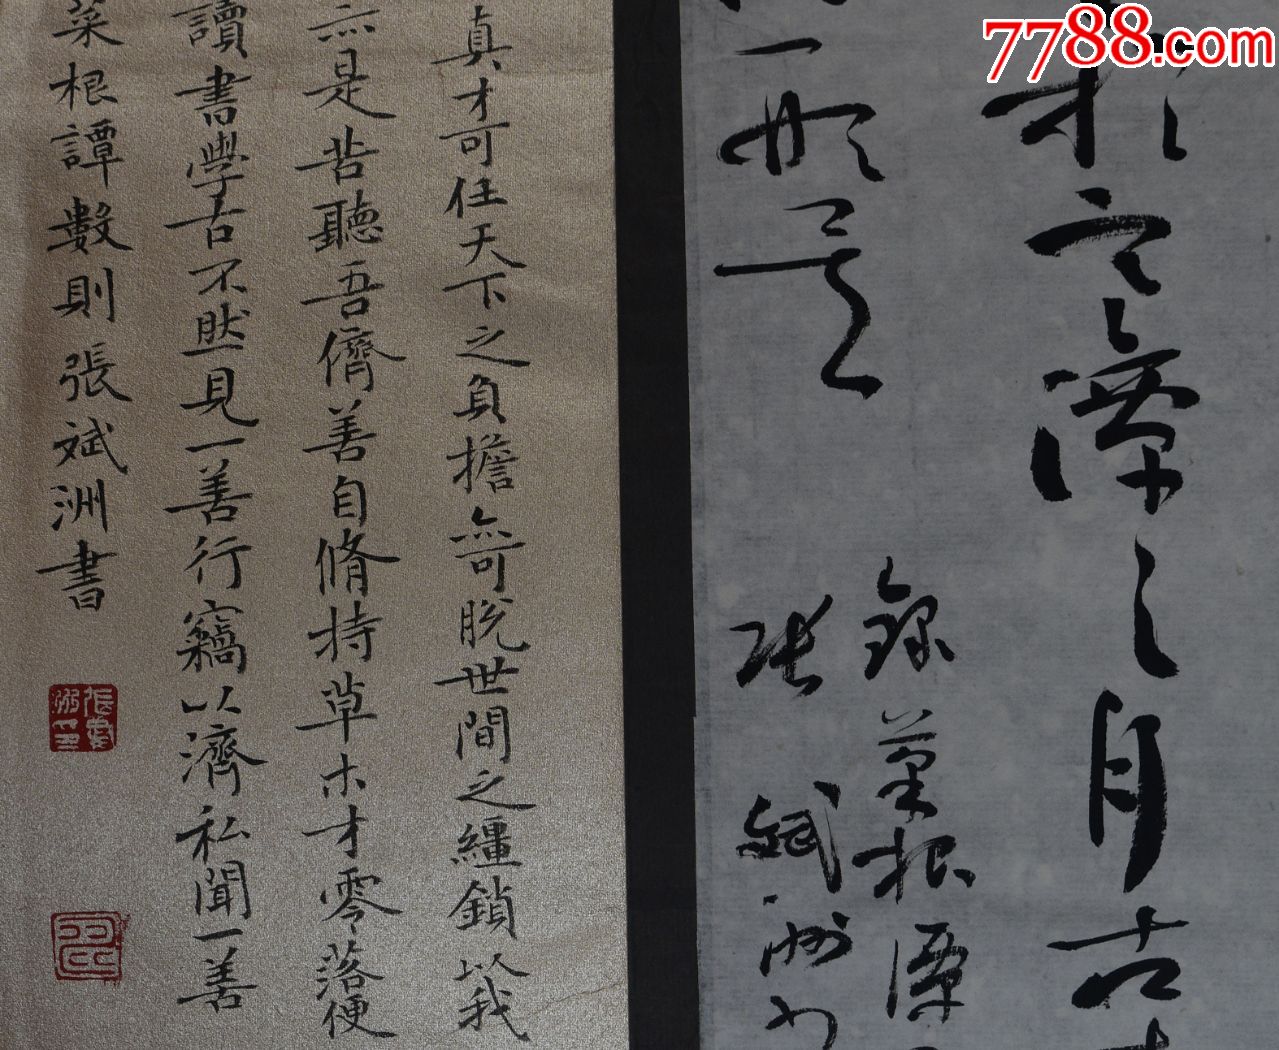 7788.com
真才可任天下之負擔亦可脫世間之繮鎖以我
亦是苦聽吾儕善自脩持草木才零落便
讀書學古不然見一善行竊以濟私聞一善
菜根譚數則張斌洲書
之潭之月古
一般是
錄菜根潭
張斌洲